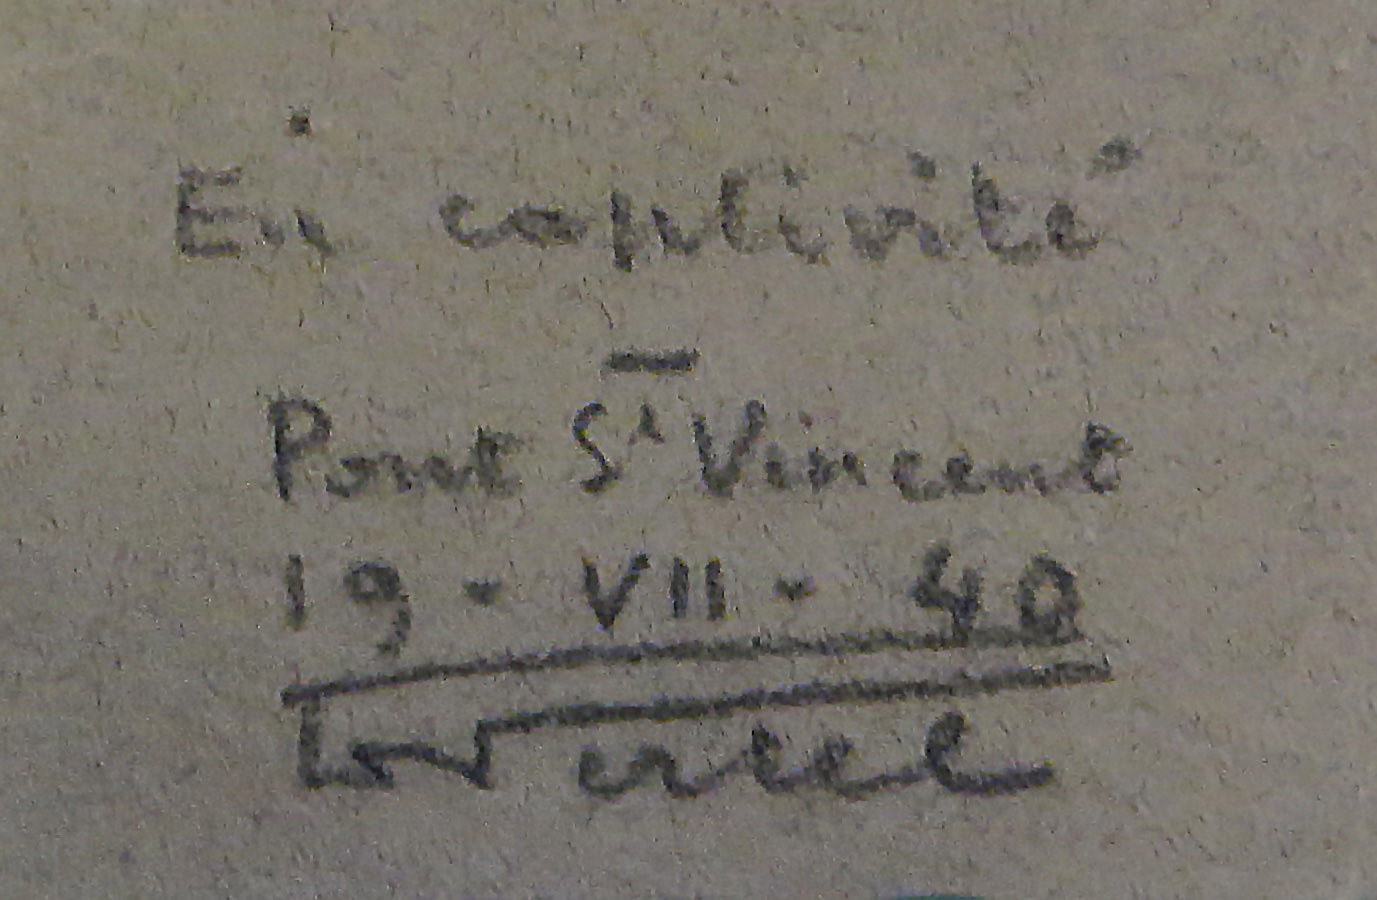 En captivité
—
Pont St Vincent
19 • VII • 40